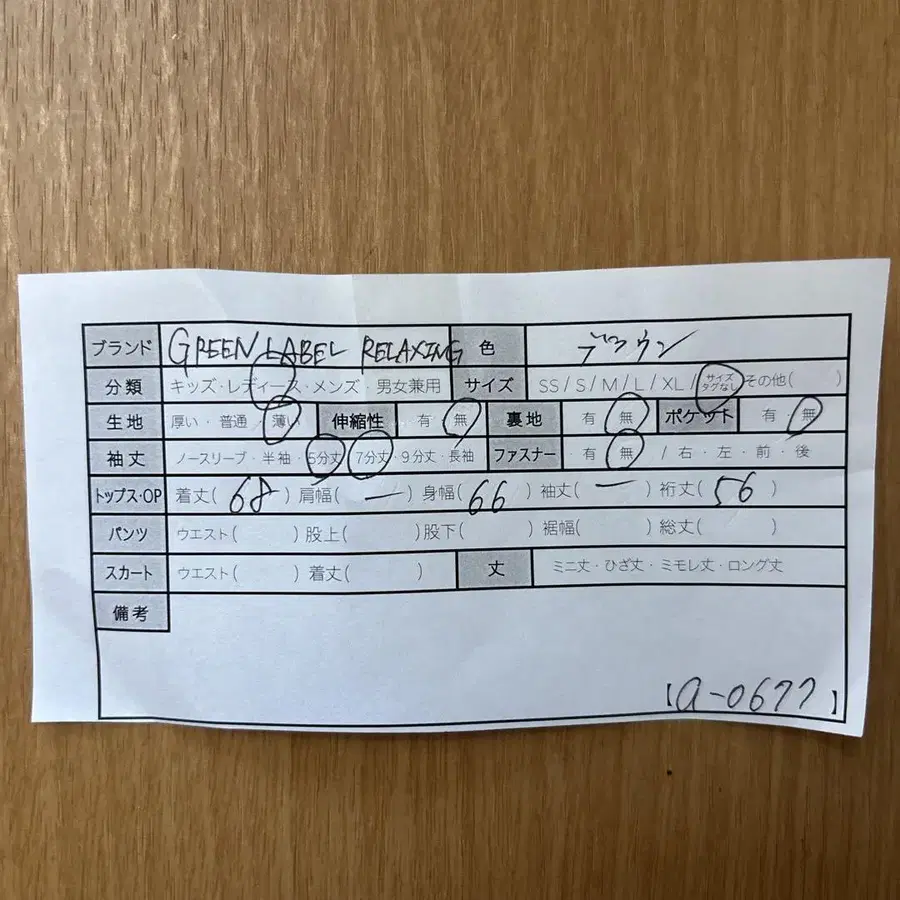 ブランド GREEN LABEL RELAXING 色 ブラウン
分類 キッズ・レディース・メンズ・男女兼用 サイズ SS/S/M/L/XL/サイズタグなし その他( )
生地 厚い・普通・薄い 伸縮性 有・無 裏地 有・無 ポケット 有・無
袖丈 ノースリーブ・半袖・5分丈・7分丈・9分丈・長袖 ファスナー ・有・無 /右・左・前・後
トップス・OP 着丈(68) 肩幅(ー) 身幅(66) 袖丈(ー) 裄丈(56)
パンツ ウエスト( ) 股上( ) 股下( ) 裾幅( ) 総丈( )
スカート ウエスト( ) 着丈( ) 丈 ミニ丈・ひざ丈・ミモレ丈・ロング丈
備考
【a-0677】